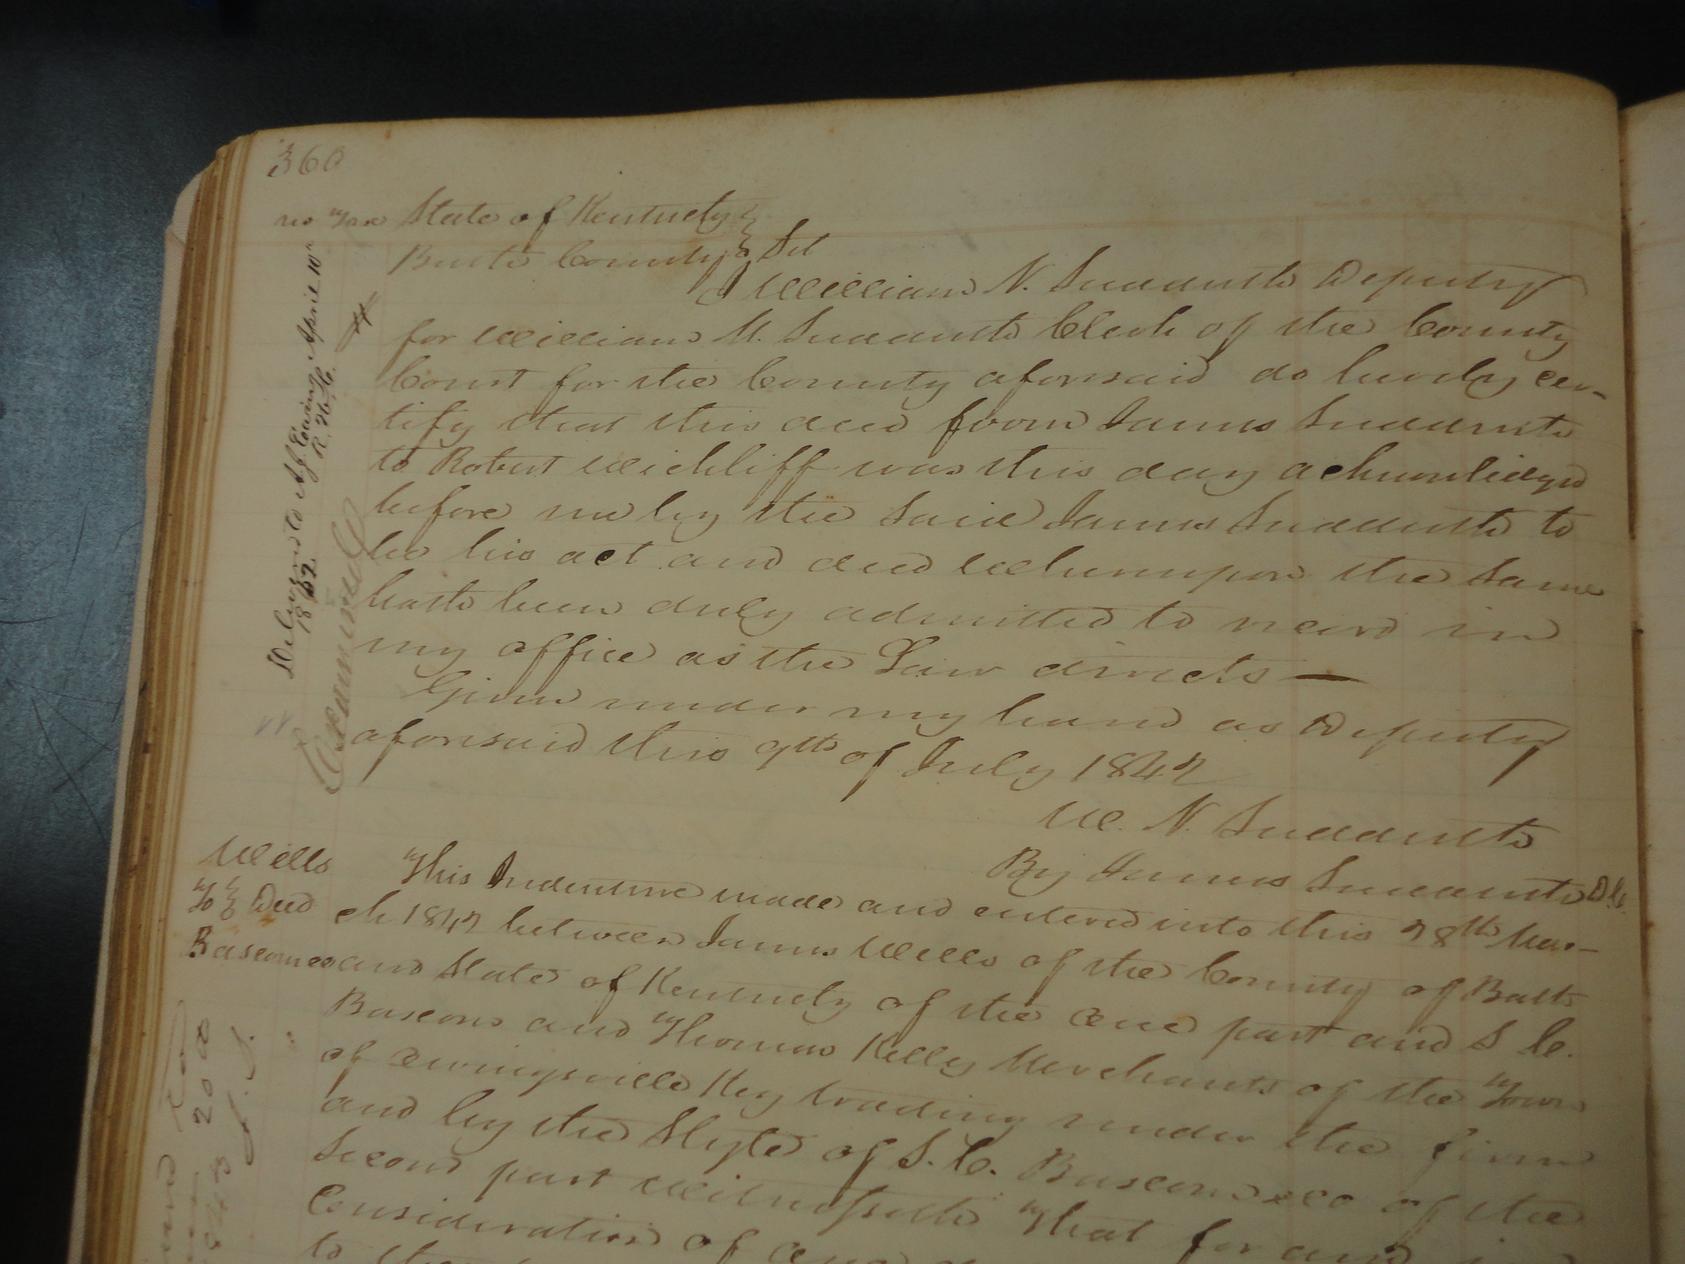 360
no Tax State of Kentucky
Bath County Sct
I William N. Sudduth Deputy
for William M. Sudduth Clerk of the County
Court for the County aforesaid do hereby cer-
tify that this deed from James Suddruth
to Robert Wickliff was this day acknowledged
before me by the said James Sudduth to
be his act and deed Whereupon the same
hath been duly admitted to record in
my office as the Law directs —
Given under my hand as Deputy
aforesaid this 9th of July 1842
W. N. Sudduth
By James Sudduth D.C.
Delivered to A J Ewing April 10"
1862 R. H. C.
Examined
Wells
To Deed
Bascom &co
This Indenture made and entered into this 28th Mar-
ch 1842 between James Wells of the County of Bath
and State of Kentucky of the one part and S C.
Bascom and Thomas Kelly Merchants of the Town
of Owingsville Key trading under the firm
and by the Style of S. C. Bascom &co of the
second part Witnesseth That for and in
Consideration of
to